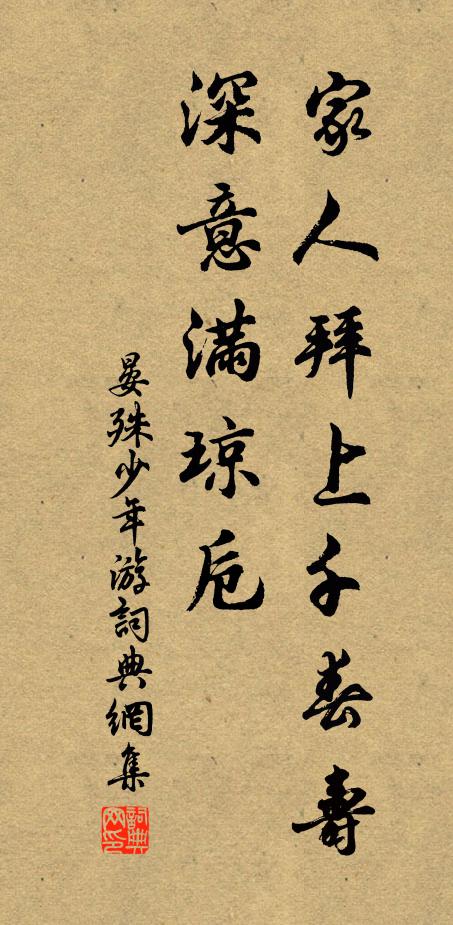 家人拜上千春壽
深意滿琼卮
晏殊少年游詞典網集
詞典网印